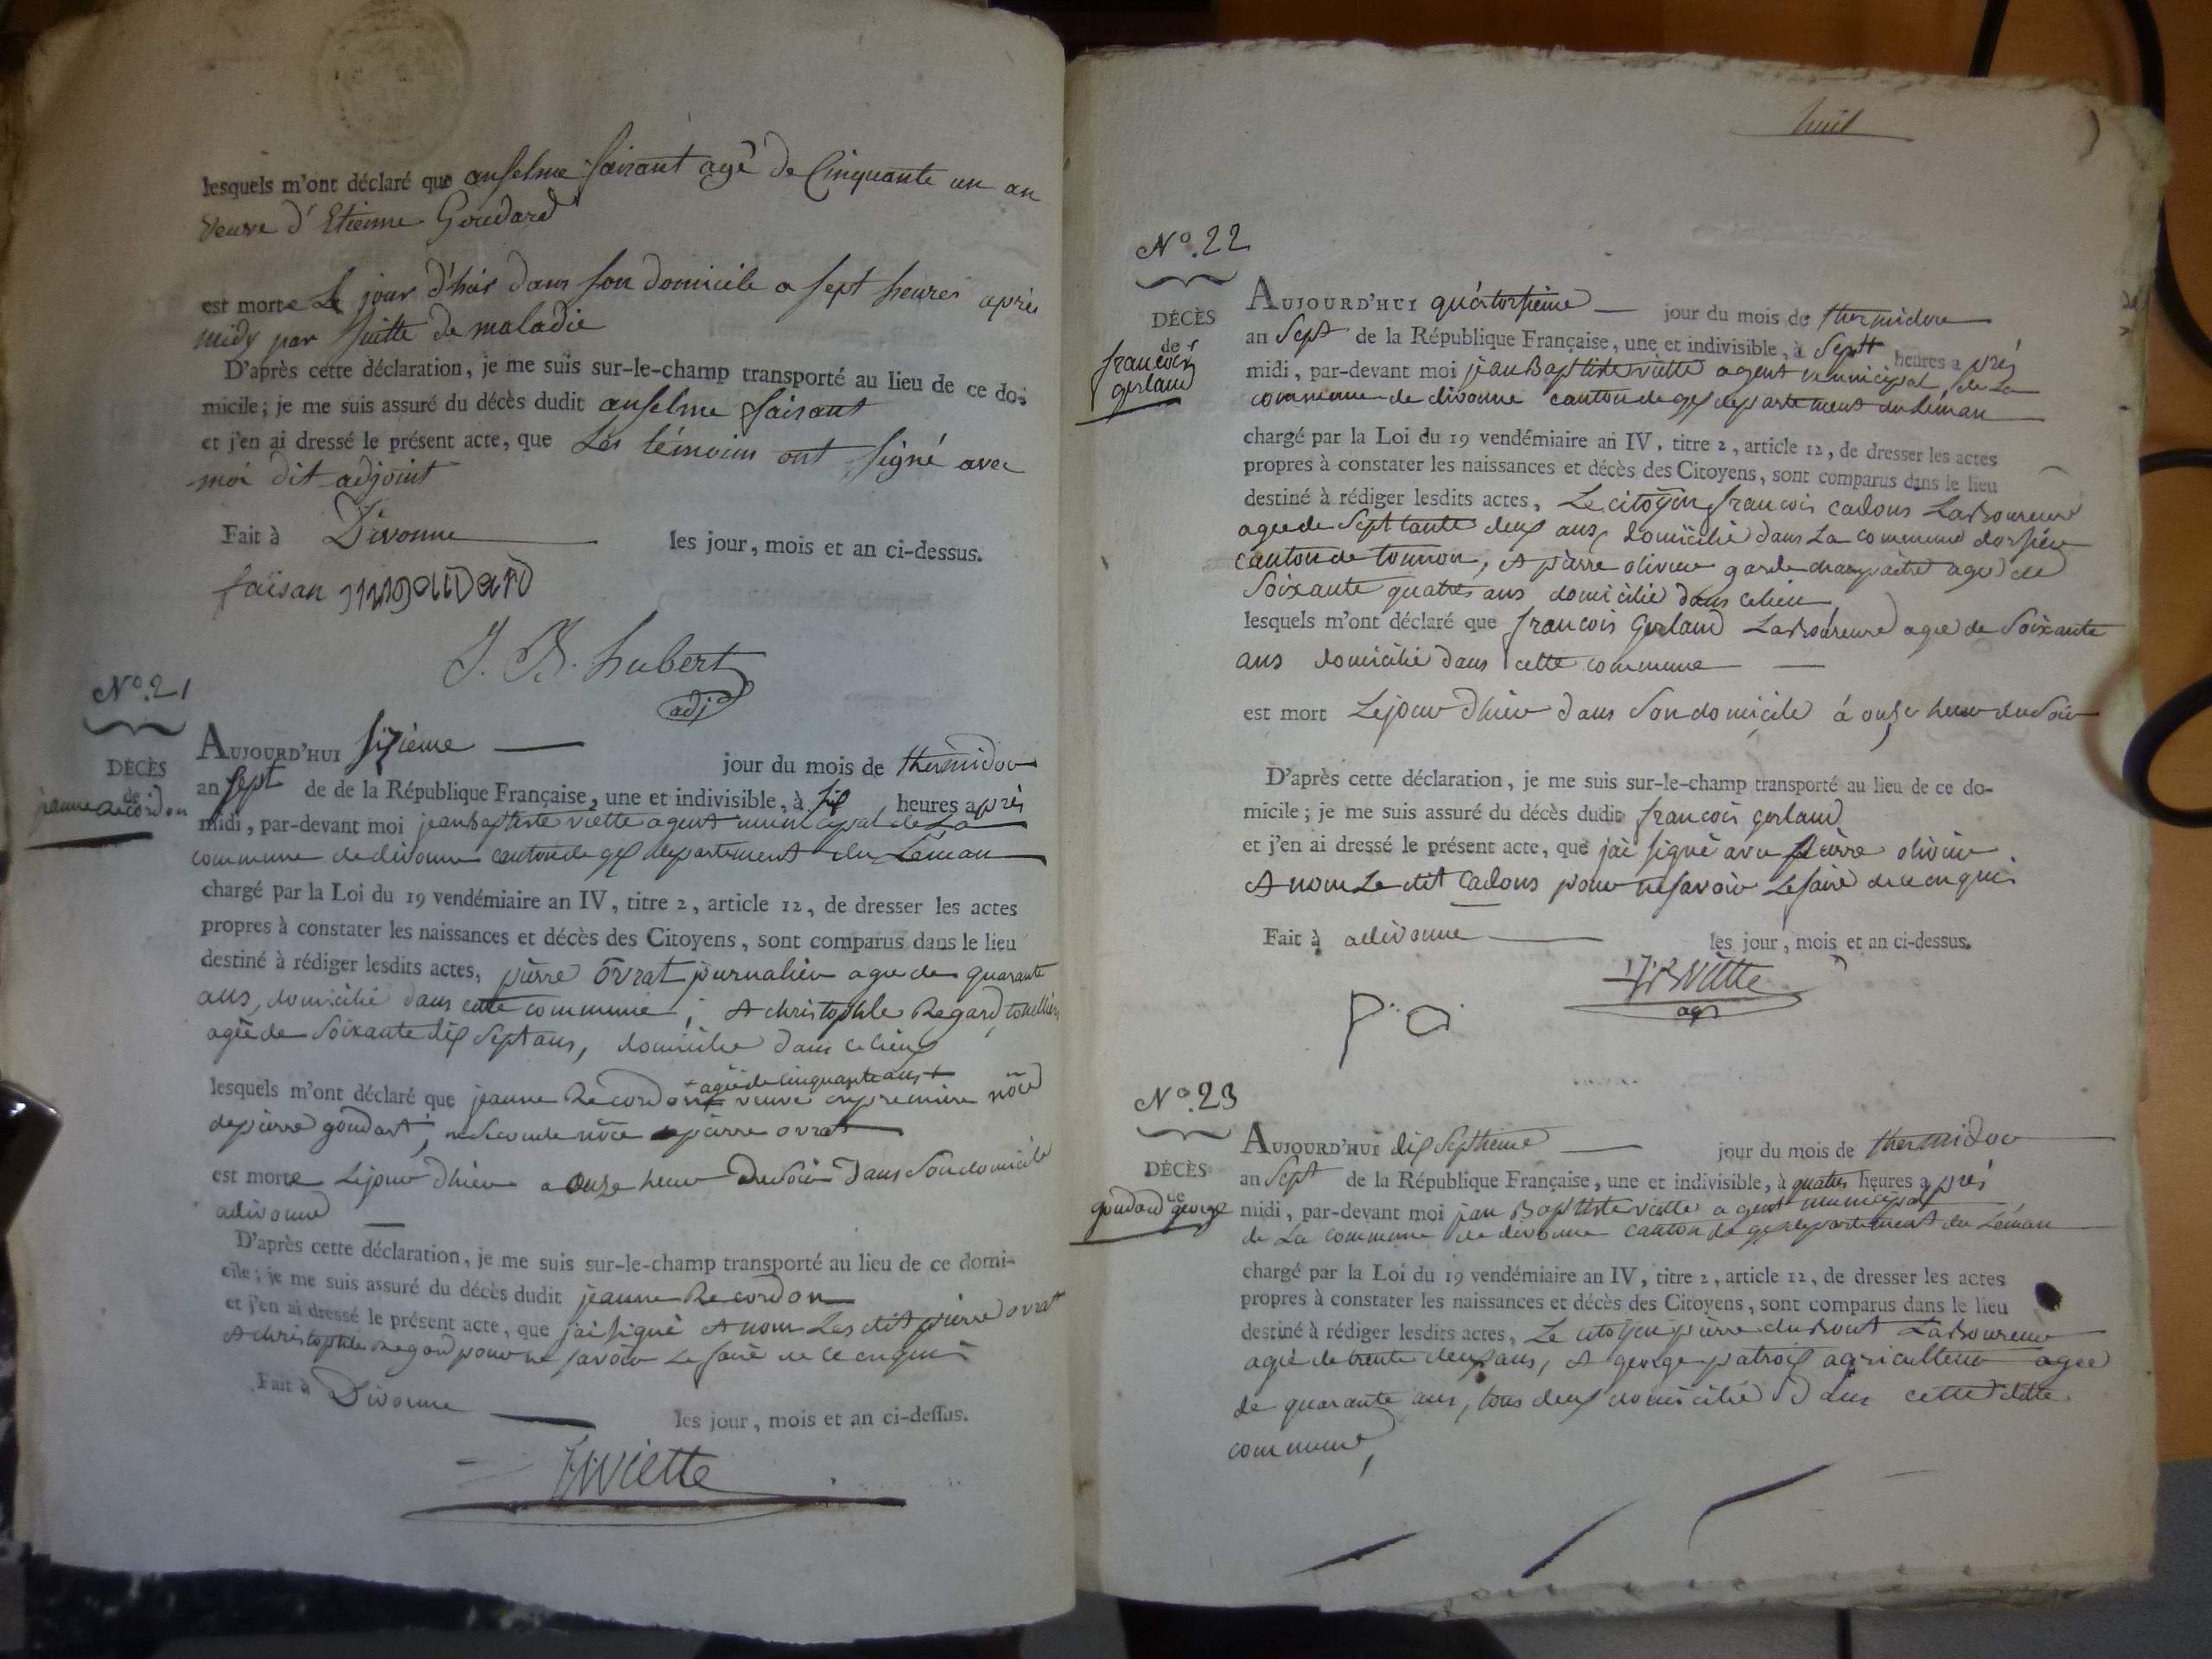 lesquels m'ont déclaré que anselme faisant agé de Cinquante un an
veuve d'Etienne Goudard
est morte Le jour d'hier dans son domicile a sept heures après
midy par suitte de maladie
D'après cette déclaration, je me suis sur-le-champ transporté au lieu de ce do-
micile; je me suis assuré du décès dudit anselme faisant
et j'en ai dressé le présent acte, que Les témoins ont signé avec
moi dit adjoint
Fait à Divonne les jour, mois et an ci-dessus.
faisan goudard
J. B. hubert
adj
N°. 21
DÉCÈS
de
jeanne recordon
AUJOURD'HUI sizième jour du mois de thermidor
an sept de de la République Française, une et indivisible, à six heures après
midi, par-devant moi jean Baptiste viette agent municipal de La
commune de divonne canton de gex departement du Léman
chargé par la Loi du 19 vendémiaire an IV, titre 2, article 12, de dresser les actes
propres à constater les naissances et décès des Citoyens, sont comparus dans le lieu
destiné à rédiger lesdits actes, pierre ovrat journalier agee de quarante
ans, domicilié dans cette commune, et christophle Regard
agée de soixante dix sept ans, domicilié dans ce lieux
lesquels m'ont déclaré que jeanne Recordon agée de cinquante ans veuve en premiere nôce
de pierre goudart, en seconde nôce pierre ovrat
est morte Le jour d'hier a onze heure du soir dans son domicile
a divonne
D'après cette déclaration, je me suis sur-le-champ transporté au lieu de ce domi-
cile; je me suis assuré du décès dudit jeanne Recordon
et j'en ai dressé le présent acte, que j'ai signé et nom Les dit pierre ovrat
et christophle Regard pour ne savoir Le faire de ce enquis
Fait à Divonne les jour, mois et an ci-dessus.
JBViette
huit
N°. 22
DÉCÈS
de
francois
gerland
AUJOURD'HUI quatorsieme jour du mois de thermidor
an Sept de la République Française, une et indivisible, à Sept heures après
midi, par-devant moi jean Baptiste viette agent municipal de La
commune de divonne canton de gex departement du Léman
chargé par la Loi du 19 vendémiaire an IV, titre 2, article 12, de dresser les actes
propres à constater les naissances et décès des Citoyens, sont comparus dans le lieu
destiné à rédiger lesdits actes, Le citoyen francois cadous Laboureur
agee de Sept tante deux ans, domicilié dans La commune
canton de, et pierre olivier garde champêtre agé de
Soixante quatre ans domicilié dans ce lieu
lesquels m'ont déclaré que francois Gerland Laboureure agé de Soixante
ans domicilié dans cette commune
est mort Le jour d'hier dans son domicile à onze heure du Soir
D'après cette déclaration, je me suis sur-le-champ transporté au lieu de ce do-
micile; je me suis assuré du décès dudit francois gerland
et j'en ai dressé le présent acte, que j'ai signé avec pierre olivier
et nom Le dit cadous pour ne savoir Le faire de ce enquis
Fait à a divonne les jour, mois et an ci-dessus.
JBViette
agt
P. O.
N°. 23
DÉCÈS
de
goudard george
AUJOURD'HUI dix septieme jour du mois de thermidor
an Sept de la République Française, une et indivisible, à quatre heures après
midi, par-devant moi jean Baptiste viette agent municipal
de La commune de divonne canton de gex departement du Léman
chargé par la Loi du 19 vendémiaire an IV, titre 2, article 12, de dresser les actes
propres à constater les naissances et décès des Citoyens, sont comparus dans le lieu
destiné à rédiger lesdits actes, Le citoyen pierre dubout Laboureur
agée de trente deux ans, et george patroix agriculteur agee
de quarante ans, tous deux domicilié dans cette ditte
commune,